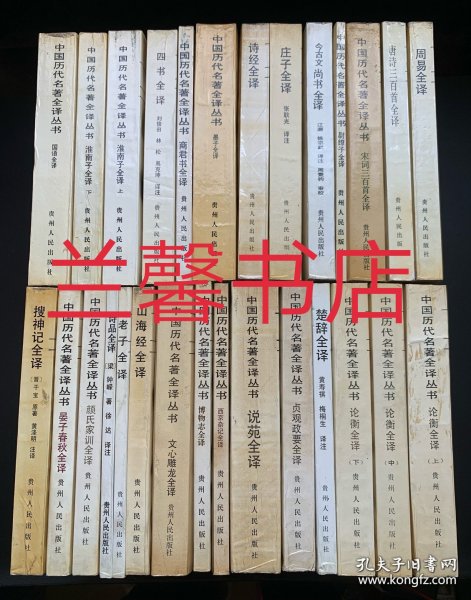 中国历代名著全译丛书 国语全译 贵州人民出版社
中国历代名著全译丛书 淮南子全译 下 贵州人民出版社
中国历代名著全译丛书 淮南子全译 上 贵州人民出版社
四书全译 刘俊田 林松 禹克坤 译注 贵州人民出版社
中国历代名著全译丛书 商君书全译 贵州人民出版社
中国历代名著全译丛书 墨子全译 贵州人民出
诗经全译 贵州人民出版社
庄子全译 张耿光 译注 贵州人民出版社
今古文尚书全译 江灏 钱宗武 译注 周秉钧 审校 贵州人民出版社
中国历代名著全译丛书 尉缭子全译 贵州人民出版社
中国历代名著全译丛书 宋词三百首全译 贵州人民出版社
唐诗三百首全译 贵州人民出版社
周易全译 贵州人民出版社
兰馨书店
搜神记全译 (晋)干宝 原著 黄涤明 注译 贵州人民出版社
中国历代名著全译丛书 晏子春秋全译 贵州人民出版社
中国历代名著全译丛书 颜氏家训全译 贵州人民出版社
诗品全译 梁 钟嵘 著 徐达 译注 贵州人民出版社
老子全译 贵州人民出版社
山海经全译 贵州人民出版社
中国历代名著全译丛书 文心雕龙全译 贵州人民出版社
中国历代名著全译丛书 博物志全译 贵州人民出版社
中国历代名著全译丛书 西京杂记全译 贵州人民出版社
中国历代名著全译丛书 说苑全译 贵州人民出版社
中国历代名著全译丛书 贞观政要全译 贵州人民出版社
楚辞全译 黄寿祺 梅桐生 译注 贵州人民出版社
中国历代名著全译丛书 论衡全译 (下) 贵州人民出版社
中国历代名著全译丛书 论衡全译 (中) 贵州人民出版社
中国历代名著全译丛书 论衡全译 (上) 贵州人民出版社
孔夫子旧书网
www.kongfz.com